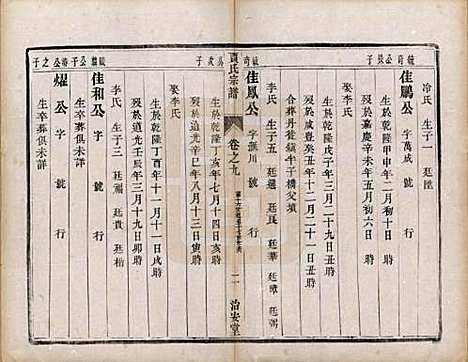 毓奇公長子
佳鵬公 字萬成 號 行
生於乾隆甲申年二月初十日 時
歿於嘉慶辛未年五月初六日 時
冷氏 生子一 廷陞
毓奇公次子
佳鳳公 字滙川 號 行
生於乾隆戊子年三月二十九日丑時
歿於咸豐癸丑年十二月二十一日丑時
合葬丹徒鎮牛子橋父墳
李氏 生子五 廷選 廷良 廷華 廷璋 廷弼
賈氏宗譜
卷之九
治安堂
佳和公 字 號 行
生於乾隆丁亥年七月十四日亥時
歿於道光辛巳年八月十三日寅時
娶李氏
生於乾隆丁酉年十一月十一日戌時
歿於道光壬辰年三月十三日卯時
李氏 生子三 廷福 廷貴 廷楷
公之子
燿公 字 號 行
生卒葬俱未詳
生卒葬俱未詳